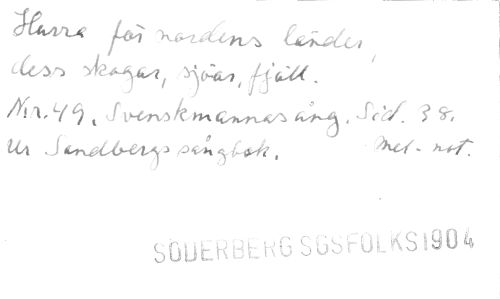 Hurra för nordens länder,
dess skogar, sjöar, fjäll.
Nr. 49. Svenskmannasång. Sid. 38.
Ur Sandbergs sångbok. Mel. not.
SÖDERBERG SGSFOLKS1904